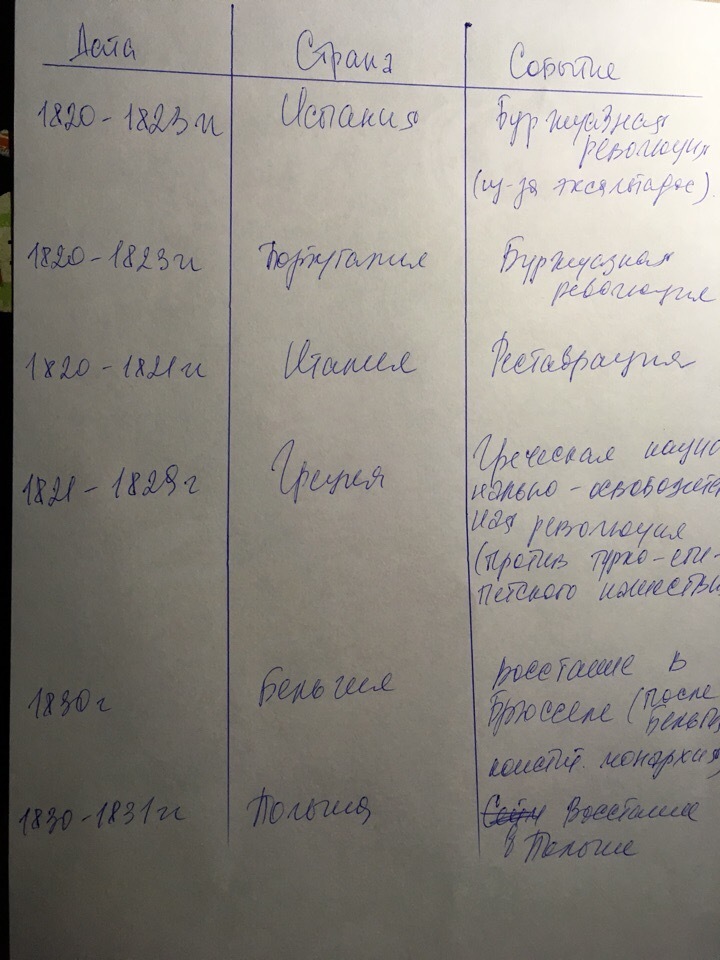 Дата Страна Событие
1820-1823гг Испания Буржуазная
революция
(из-за эксальтадос).
1820-1823гг Португалия Буржуазная
революция
1820-1821гг Италия Реставрация
1821-1829г Греция Греческая нацио
нально-освободите
ная революция
(против турко-еги-
петского нашестви
1830г Бельгия восстание в
Брюсселе (после
Бельги
констит. монархия)
1830-1831гг Польша Восстание
в Польше